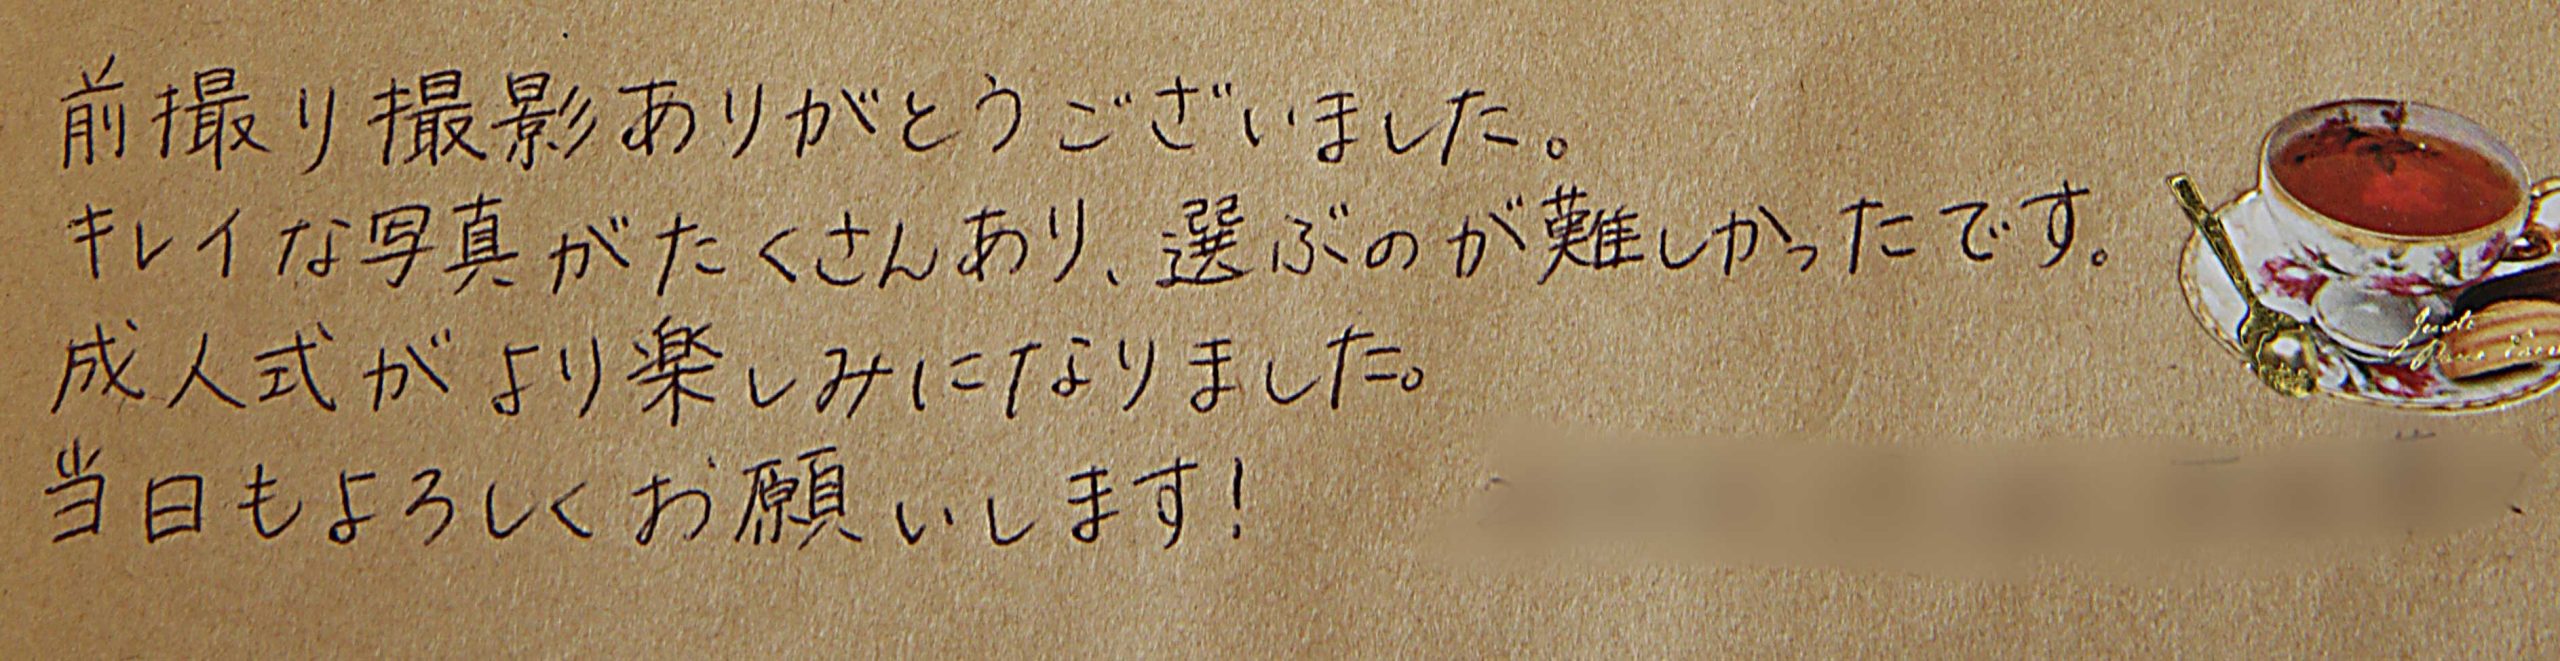 前撮り撮影ありがとうございました。
キレイな写真がたくさんあり、選ぶのが難しかったです。
成人式がより楽しみになりました。
当日もよろしくお願いします!